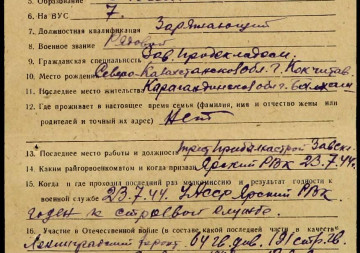 5. Образование
6. На ВУС 7.
7. Должностная квалификация Заряжающий
8. Военное звание Рядовой
9. Гражданская специальность Зав. продскладом.
10. Место рождения Северо-Казахстанской обл. г. Кокчетав
11. Последнее место жительства Карагандинской обл. г. Балхаш
12. Где проживает в настоящее время семья (фамилия, имя и отчество жены или
родителей и точный их адрес) Нет
13. Последнее место работы и должность трест Прибалхашстрой Завскл.
14. Каким райгорвоенкоматом и когда призван Ярский РВК 23.7.44.
15. Когда и где проходил последний раз медкомиссию и результат годности к
военной службе 23.7.44. УАССР Ярский РВК
годен к строевой службе.
16. Участие в Отечественной войне (в составе какой последней части, в качестве
Ленинградский фронт 64 гв. див. 191 стр.